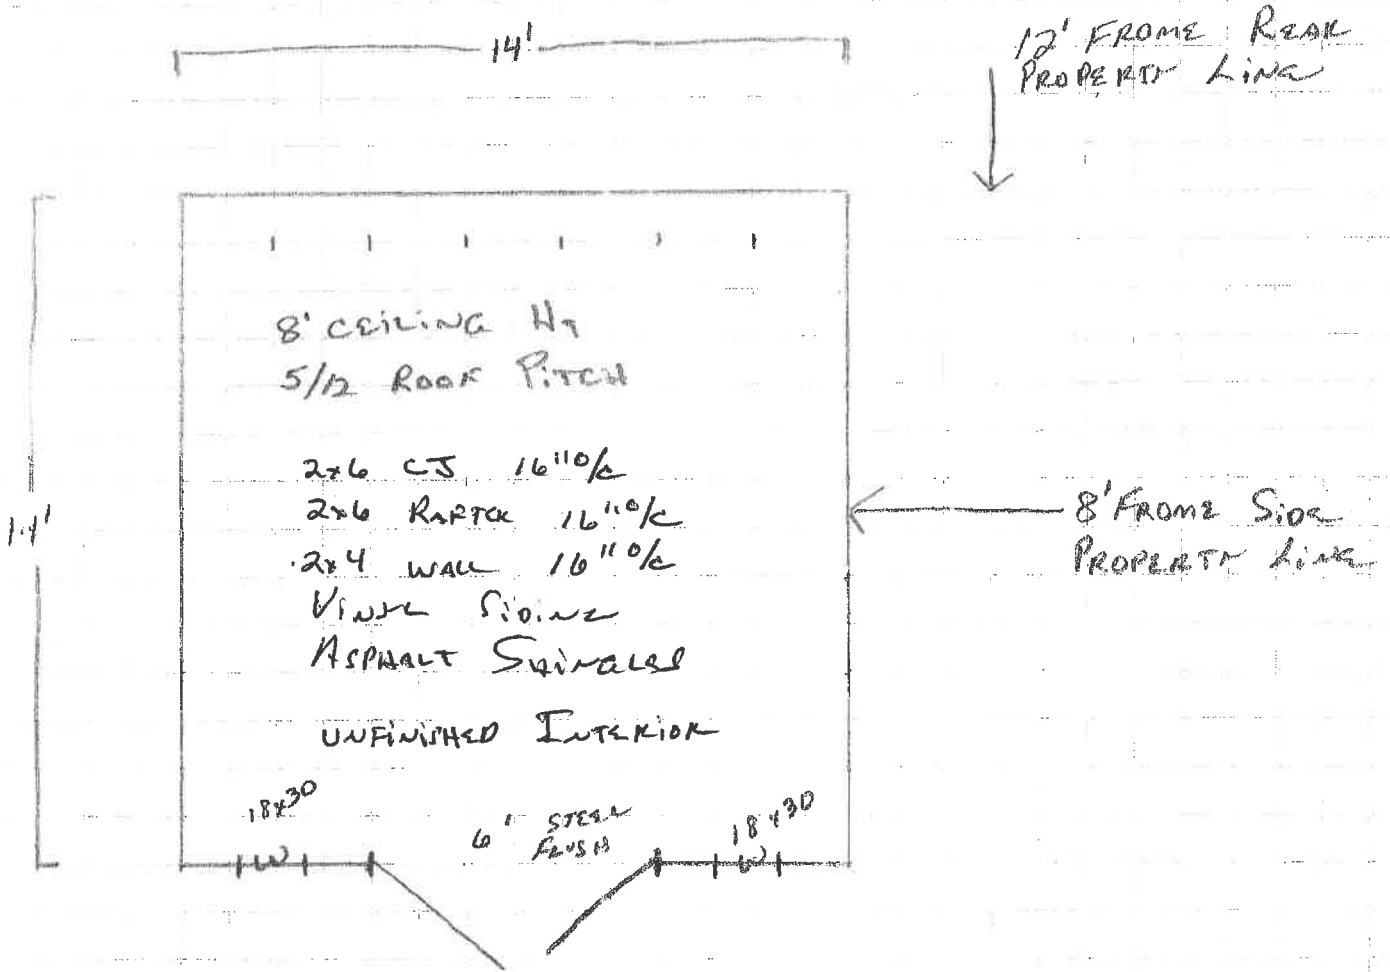 14'
12' FROME REAR
PROPERTY LINE
8' CEILING HT
5/12 ROOF PITCH
2x6 CJ 16"O/C
2x6 RAFTER 16"O/C
2x4 WALL 16"O/C
VINYL SIDING
ASPHALT SHINGLES
UNFINISHED INTERIOR
14'
8' FROME SIDE
PROPERTY LINE
18x30
6' STEEL
FLUSH
18x30
W
W